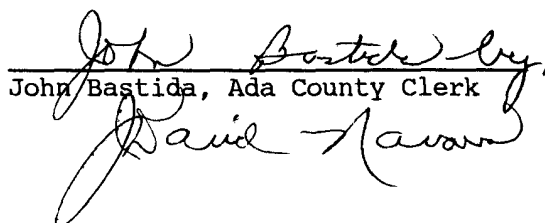 John Bastida by,
John Bastida, Ada County Clerk
J. David Navarro